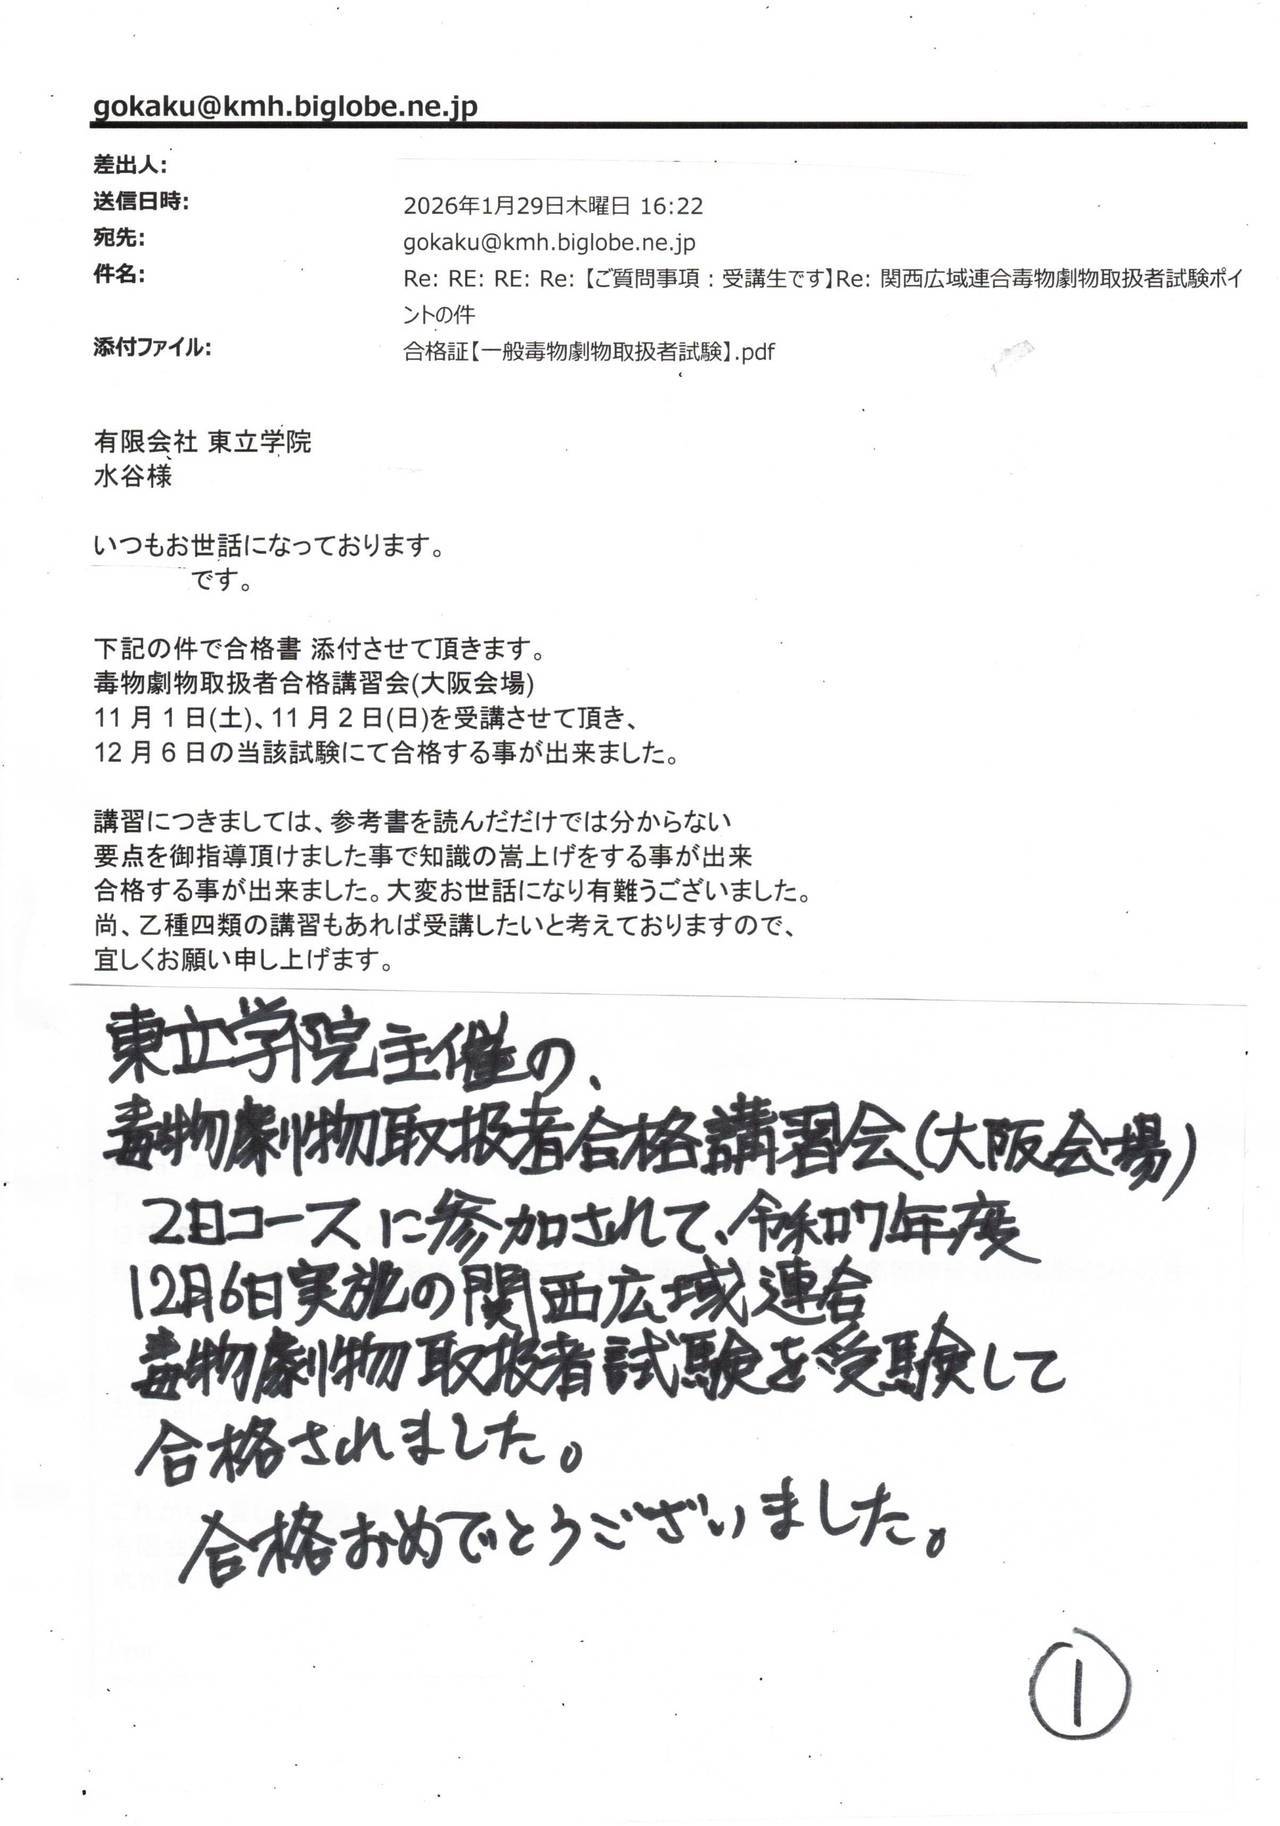 gokaku@kmh.biglobe.ne.jp
差出人:
送信日時: 2026年1月29日木曜日 16:22
宛先: gokaku@kmh.biglobe.ne.jp
件名: Re: RE: RE: Re:【ご質問事項：受講生です】Re: 関西広域連合毒物劇物取扱者試験ポイ
ントの件
添付ファイル: 合格証【一般毒物劇物取扱者試験】.pdf
有限会社 東立学院
水谷様
いつもお世話になっております。
です。
下記の件で合格書 添付させて頂きます。
毒物劇物取扱者合格講習会(大阪会場)
11月1日(土)、11月2日(日)を受講させて頂き、
12月6日の当該試験にて合格する事が出来ました。
講習につきましては、参考書を読んだだけでは分からない
要点を御指導頂けました事で知識の嵩上げをする事が出来
合格する事が出来ました。大変お世話になり有難うございました。
尚、乙種四類の講習もあれば受講したいと考えておりますので、
宜しくお願い申し上げます。
東立学院主催の、
毒物劇物取扱者合格講習会(大阪会場)
2日コースに参加されて、令和7年度
12月6日実施の関西広域連合
毒物劇物取扱者試験を受験して
合格されました。
合格おめでとうございました。
1